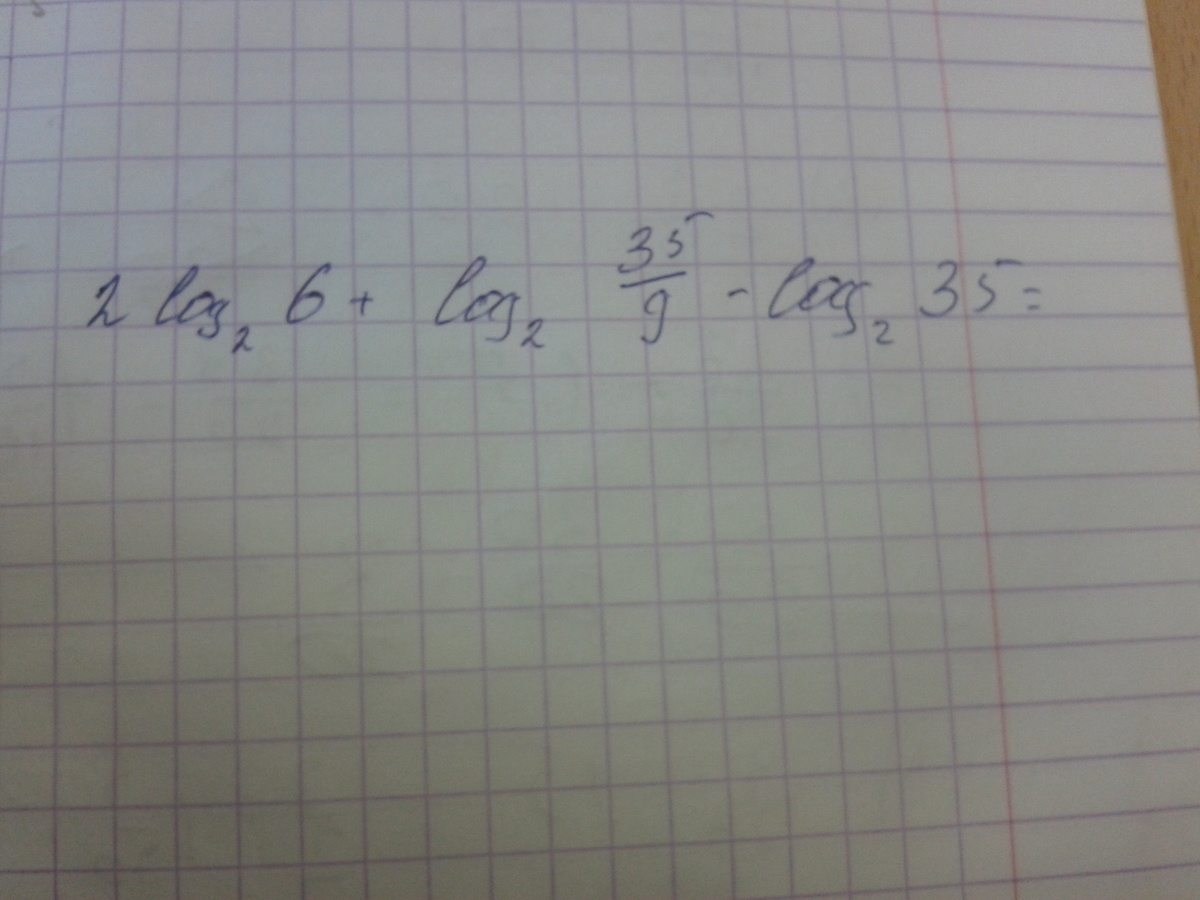 2 log₂ 6 + log₂ 35/9 - log₂ 35 =